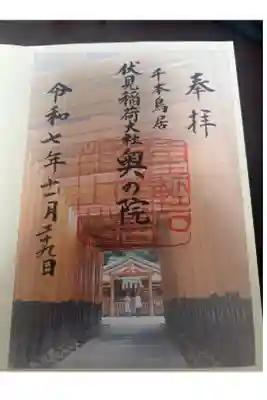 奉拝
千本鳥居
伏見稲荷大社
奥の院
令和七年十一月二十九日